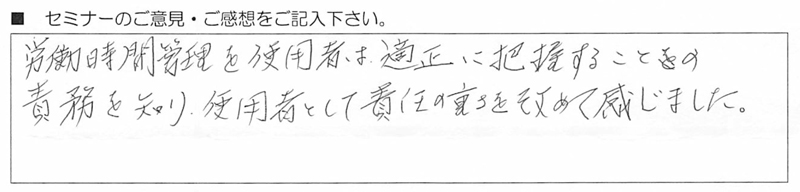 ■ セミナーのご意見・ご感想をご記入下さい。
労働時間管理を使用者は適正に把握することをの
責務を知り、使用者として責任の重さを改めて感じました。